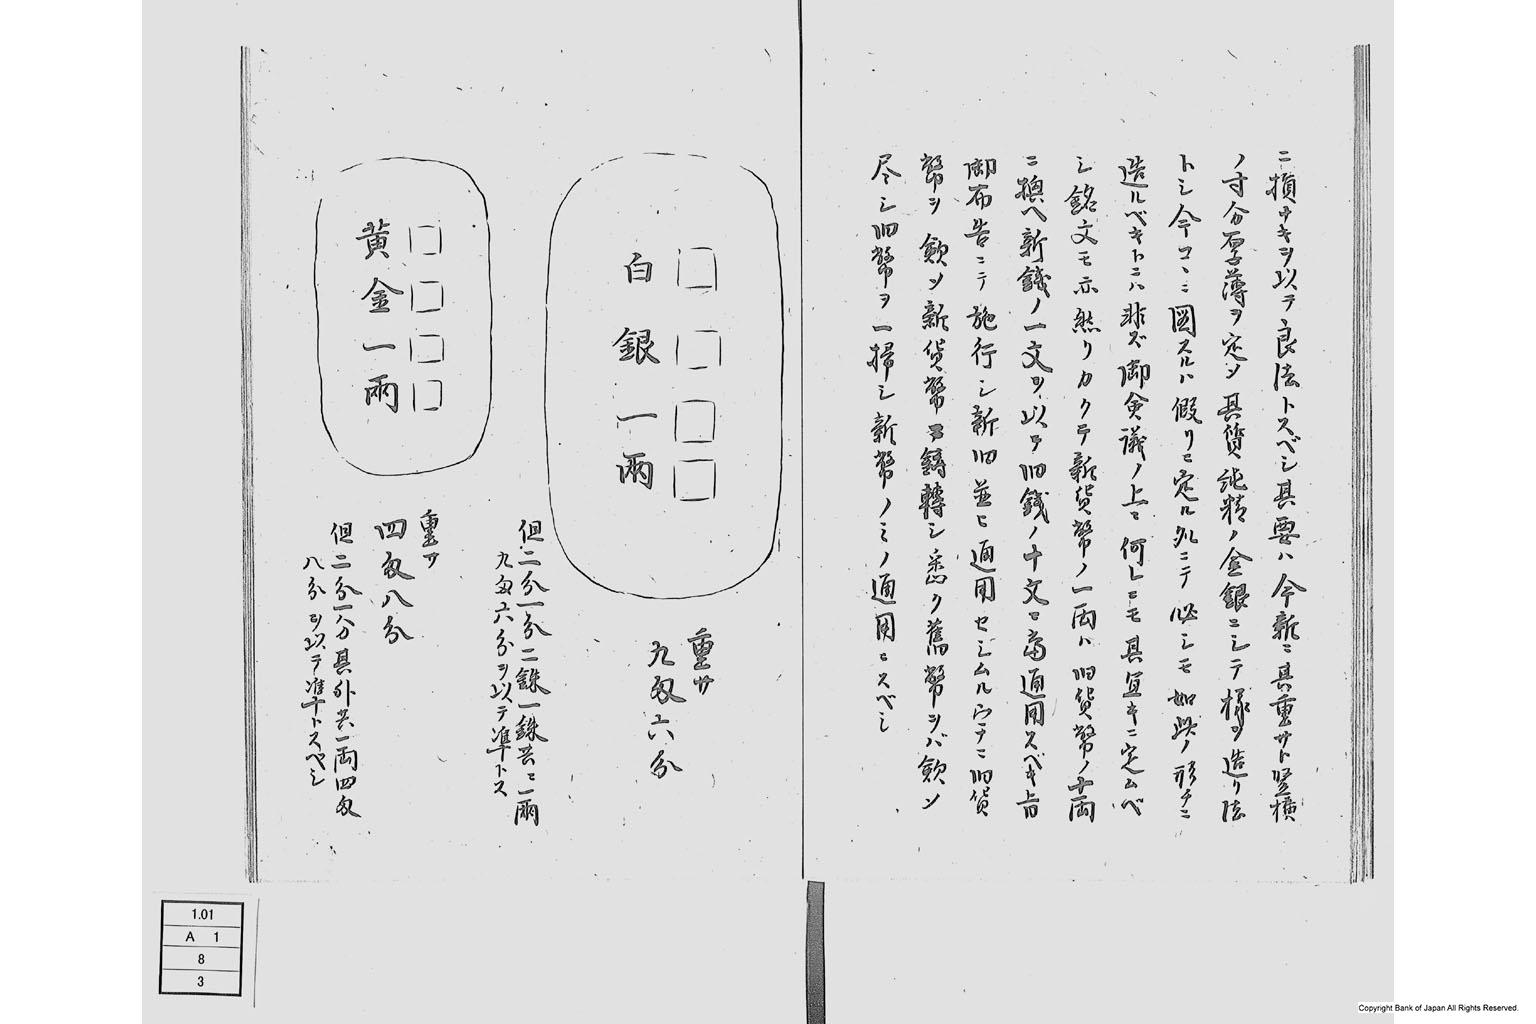 ニ損ナキヲ以テ良法トスベシ其要ハ今新ニ其重サト竪横
ノ寸分厚薄ヲ定メ其質純精ノ金銀ニシテ様ヲ造リ法
トシ今コヽニ図スルハ假リニ定ル処ニテ必シモ如此ノ形チニ
造ルベキトニハ非ズ御僉議ノ上ニ何レニモ其宜キニ定ムベ
シ銘文モ亦然リカクテ新貨幣ノ一両ハ旧貨幣ノ十両
ニ換ヘ新錢ノ一文ヲ以テ旧錢ノ十文ニ当通用スベキ旨
御布告ニテ施行シ新旧並ヒ通用セシムルウチニ旧貨
幣ヲ斂メ新貨幣ヲ鋳轉シ悉ク舊幣ヲバ斂メ
尽シ旧幣ヲ一掃シ新幣ノミノ通用ニスベシ
□□□□
白銀一兩
重サ
九匁六分
但二分一分二銖一銖共ニ一兩
九匁六分ヲ以テ準トス
□□□□
黄金一兩
重サ
四匁八分
但二分一分其外共一両四匁
八分ヲ以テ準トスベシ
1.01
A 1
8
3
Copyright Bank of Japan All Rights Reserved.